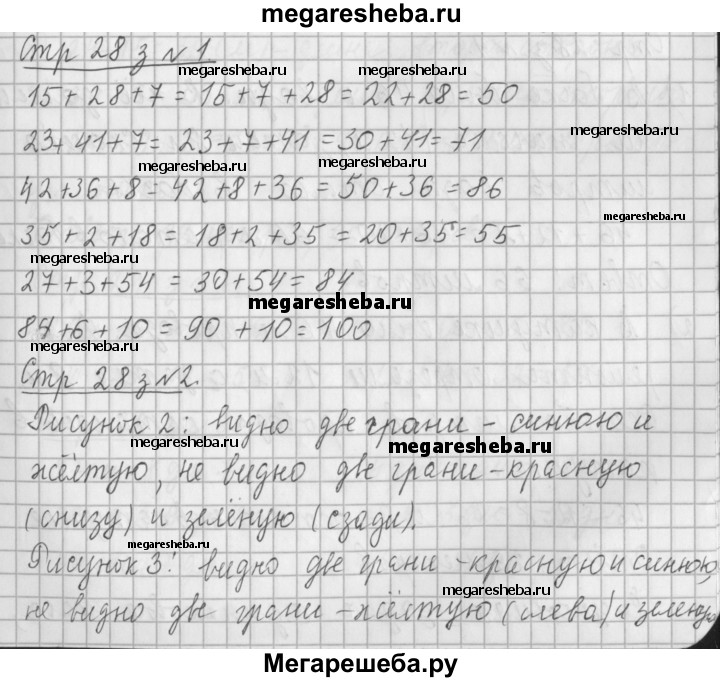 megaresheba.ru
Стр 28 з №1
megaresheba.ru
15+28+7=15+7+28=22+28=50
megaresheba.ru
23+41+7=23+7+41=30+41=71
megaresheba.ru megaresheba.ru
42+36+8=42+8+36=50+36=86
megaresheba.ru
35+2+18=18+2+35=20+35=55
megaresheba.ru
27+3+54=30+54=84
megaresheba.ru
84+6+10=90+10=100
megaresheba.ru
Стр 28 з №2.
Рисунок 2: видно две грани - синюю и
megaresheba.ru megaresheba.ru
жёлтую, не видно две грани - красную
(снизу) и зелёную (сзади).
megaresheba.ru
Рисунок 3: видно две грани - красную и синюю,
megaresheba.ru
не видно две грани - жёлтую (слева) и зелёную
Мегарешеба.ру